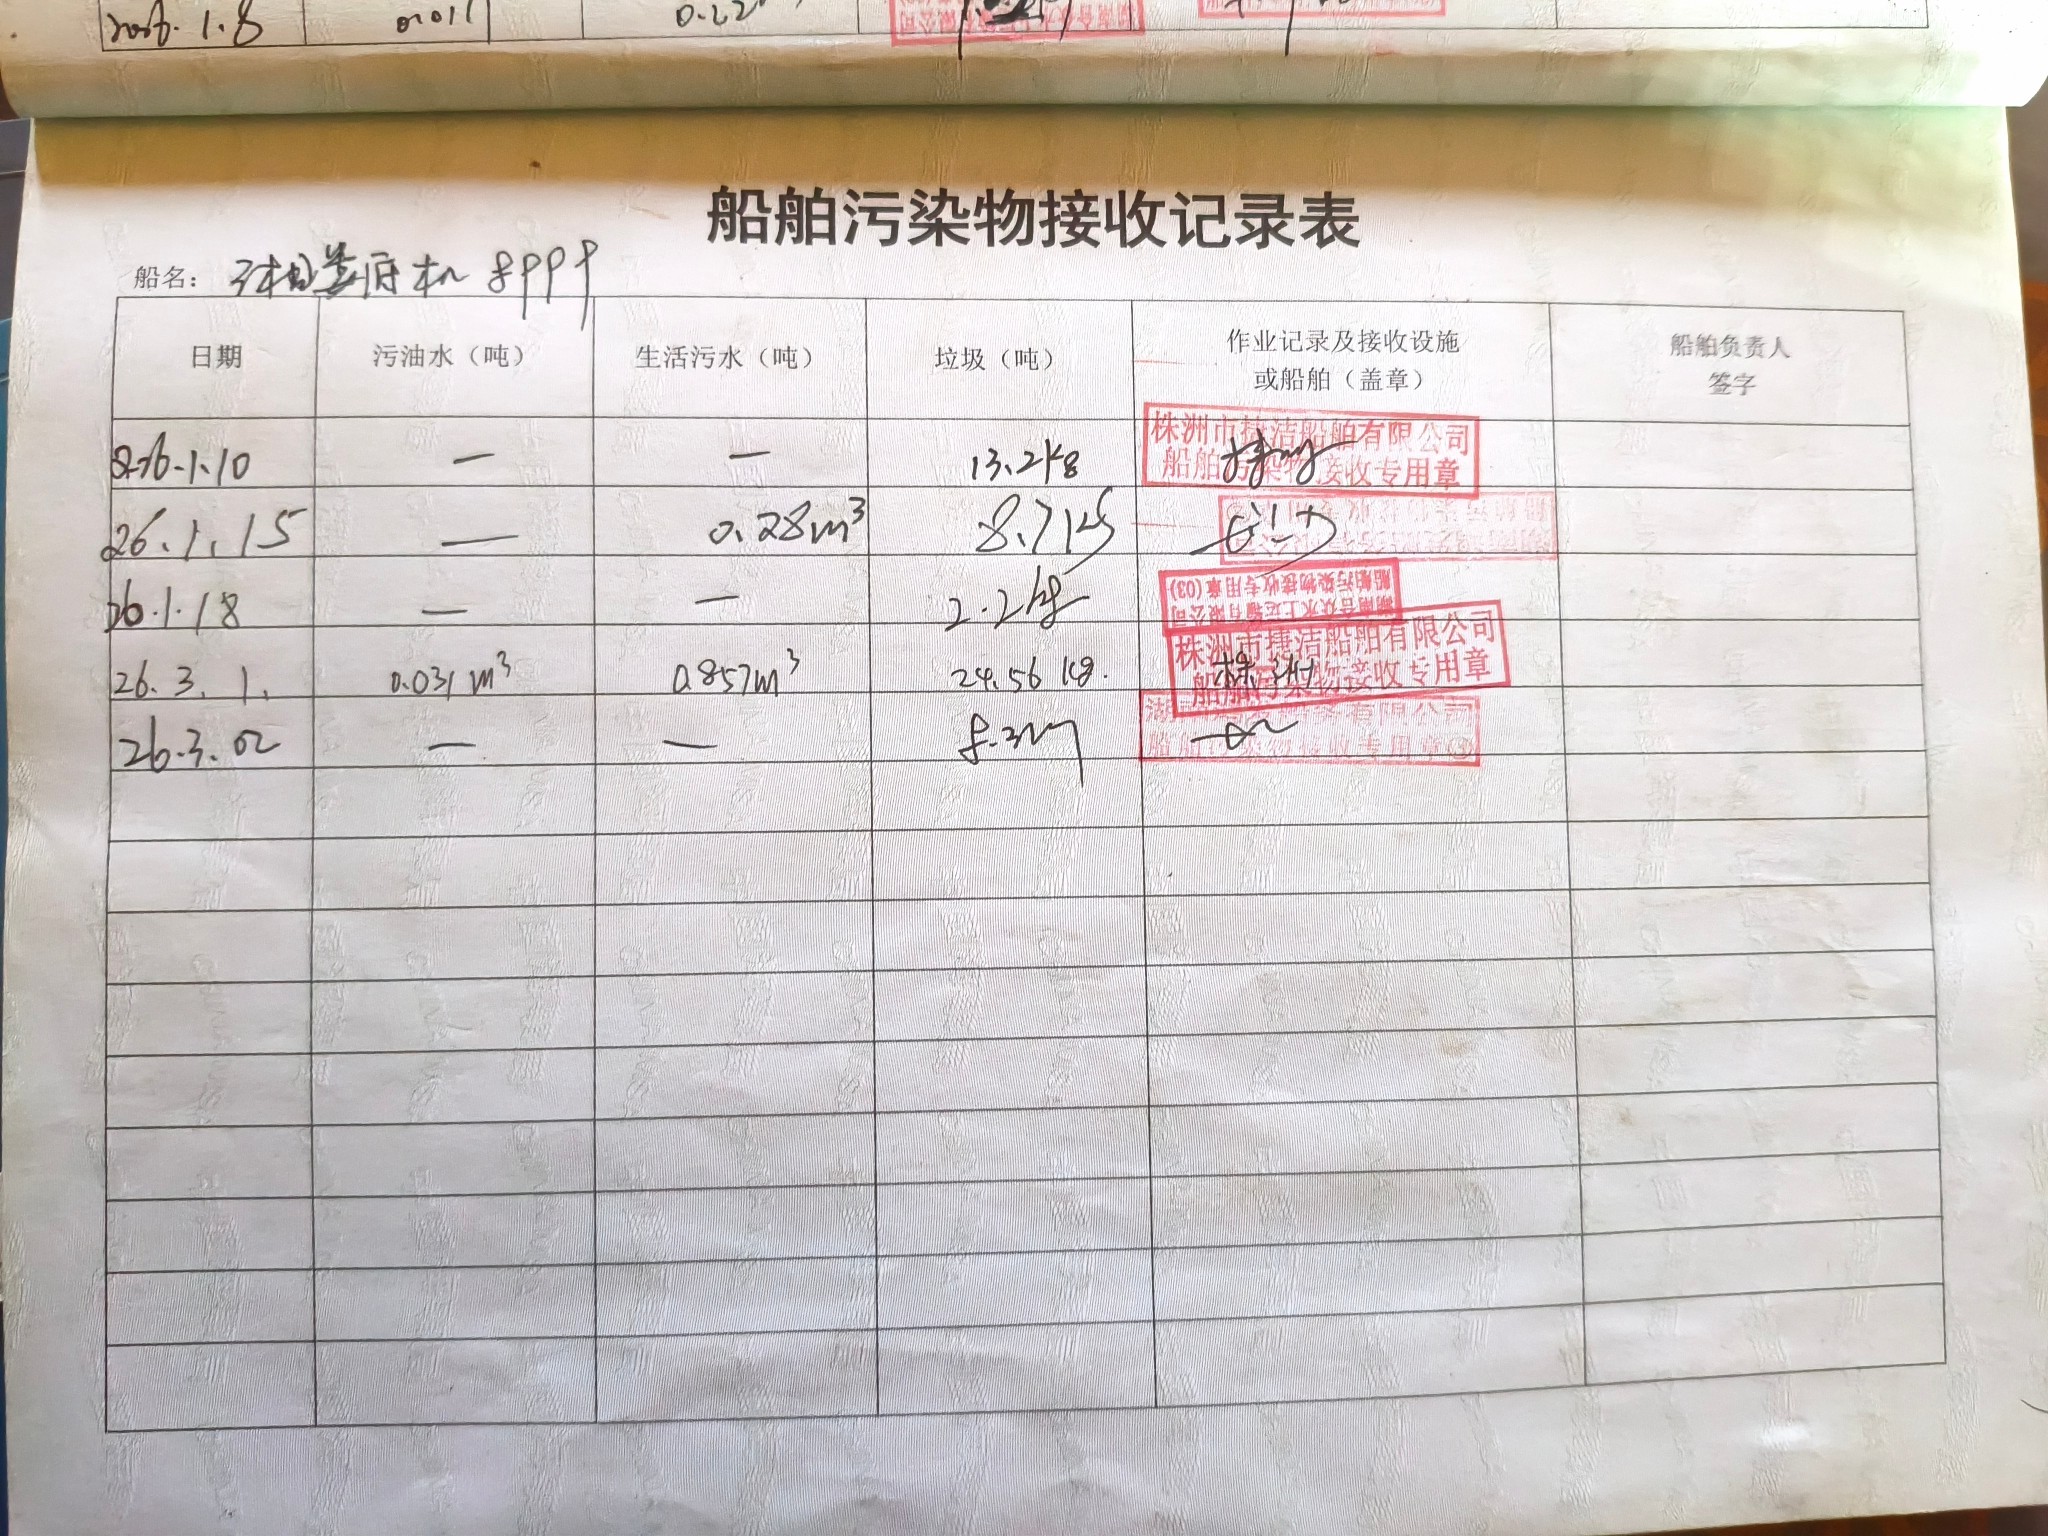 2026.1.8 0.011
船舶污染物接收记录表
船名：湘娄底机 8999
日期 污油水（吨） 生活污水（吨） 垃圾（吨） 作业记录及接收设施 船舶负责人
或船舶（盖章） 签字
株洲市捷洁船舶有限公司
船舶污染物接收专用章
26.1.10 — — 13.2kg
26.1.15 — 0.28m³ 8.7kg
26.1.18 — — 2.2kg
船舶污染物接收专用章(03)
湖南合众水上运输有限公司
株洲市捷洁船舶有限公司
船舶污染物接收专用章
26.3.1. 0.031m³ 0.857m³ 24.56kg. 株洲
26.3.02 — —
船舶污染物接收专用章